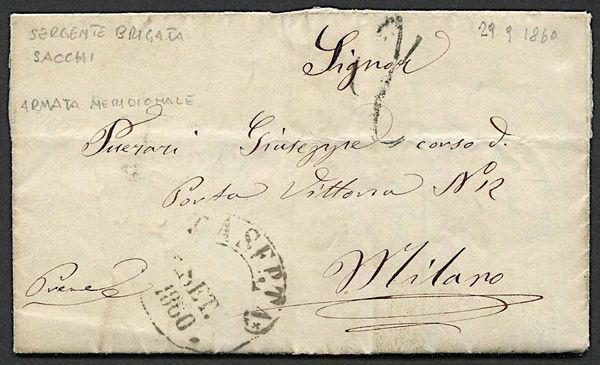 SERGENTE BRIGATA
SACCHI
29 9 1860
ARMATA MERIDIONALE
Signor
Puerari Giuseppe corso d.
Porta Vittoria N° 12
Milano
CASERTA
SET.
1860